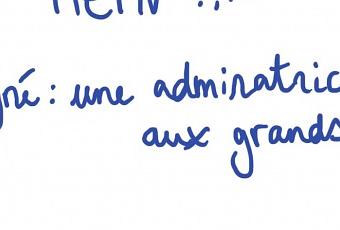 gné : une admiratric
aux grands